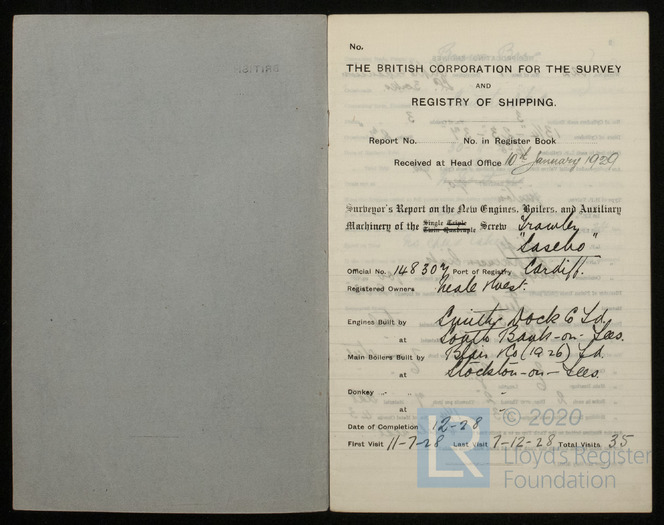 No.
THE BRITISH CORPORATION FOR THE SURVEY
AND
REGISTRY OF SHIPPING.
Report No. No. in Register Book
Received at Head Office 10th January 1929
Surveyor's Report on the New Engines, Boilers, and Auxiliary
Machinery of the Single Triple Twin Quadruple Screw Trawler
"Sasebo"
Official No. 148307 Port of Registry Cardiff.
Registered Owners Neale & West.
Engines Built by Smiths Dock Co Ld.
at South Bank-on-Tees.
Main Boilers Built by Blair & Co (1926) Ld.
at Stockton-on-Tees.
Donkey " " -
at -
Date of Completion 12-28
First Visit 11-7-28 Last Visit 7-12-28 Total Visits 35
LR
© 2020
Lloyd's Register
Foundation
BRITISH